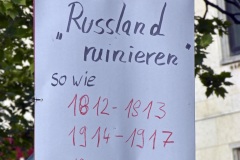 „Russland
ruinieren"
so wie
1812-1813
1914-1917